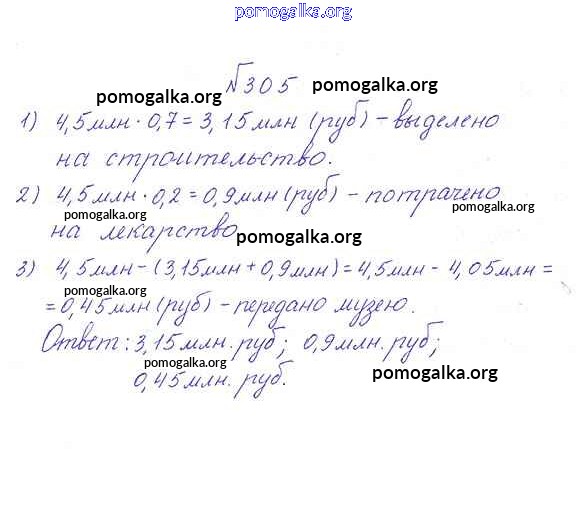 pomogalka.org
№305 pomogalka.org
pomogalka.org
1) 4,5млн · 0,7 = 3,15млн (руб) - выделено
на строительство.
pomogalka.org
2) 4,5млн · 0,2 = 0,9млн (руб) - потрачено
pomogalka.org
на лекарство
pomogalka.org
3) 4,5млн - (3,15млн + 0,9млн) = 4,5млн - 4,05млн =
pomogalka.org
= 0,45млн (руб) - передано музею.
Ответ: 3,15млн. руб; 0,9млн. руб;
pomogalka.org
0,45млн. руб. pomogalka.org